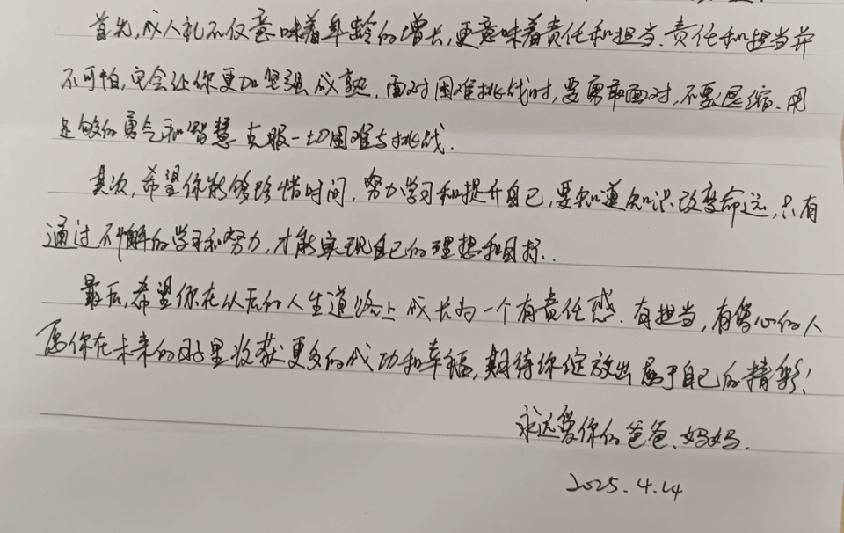 首先,成人礼不仅意味着年龄的增长,更意味着责任和担当、责任和担当并
不可怕,它会让你更加坚强、成熟,面对困难挑战时,要勇敢面对,不要退缩、用
足够的勇气和智慧克服一切困难与挑战.
其次,希望你能够珍惜时间,努力学习和提升自己,要知道知识改变命运,只有
通过不懈的学习和努力,才能实现自己的理想和目标..
最后,希望你在以后的人生道路上成长为一个有责任感、有担当,有爱心的人
愿你在未来的日子里收获更多的成功和幸福,期待你绽放出属于自己的精彩!
永远爱你的爸爸、妈妈.
2025.4.14